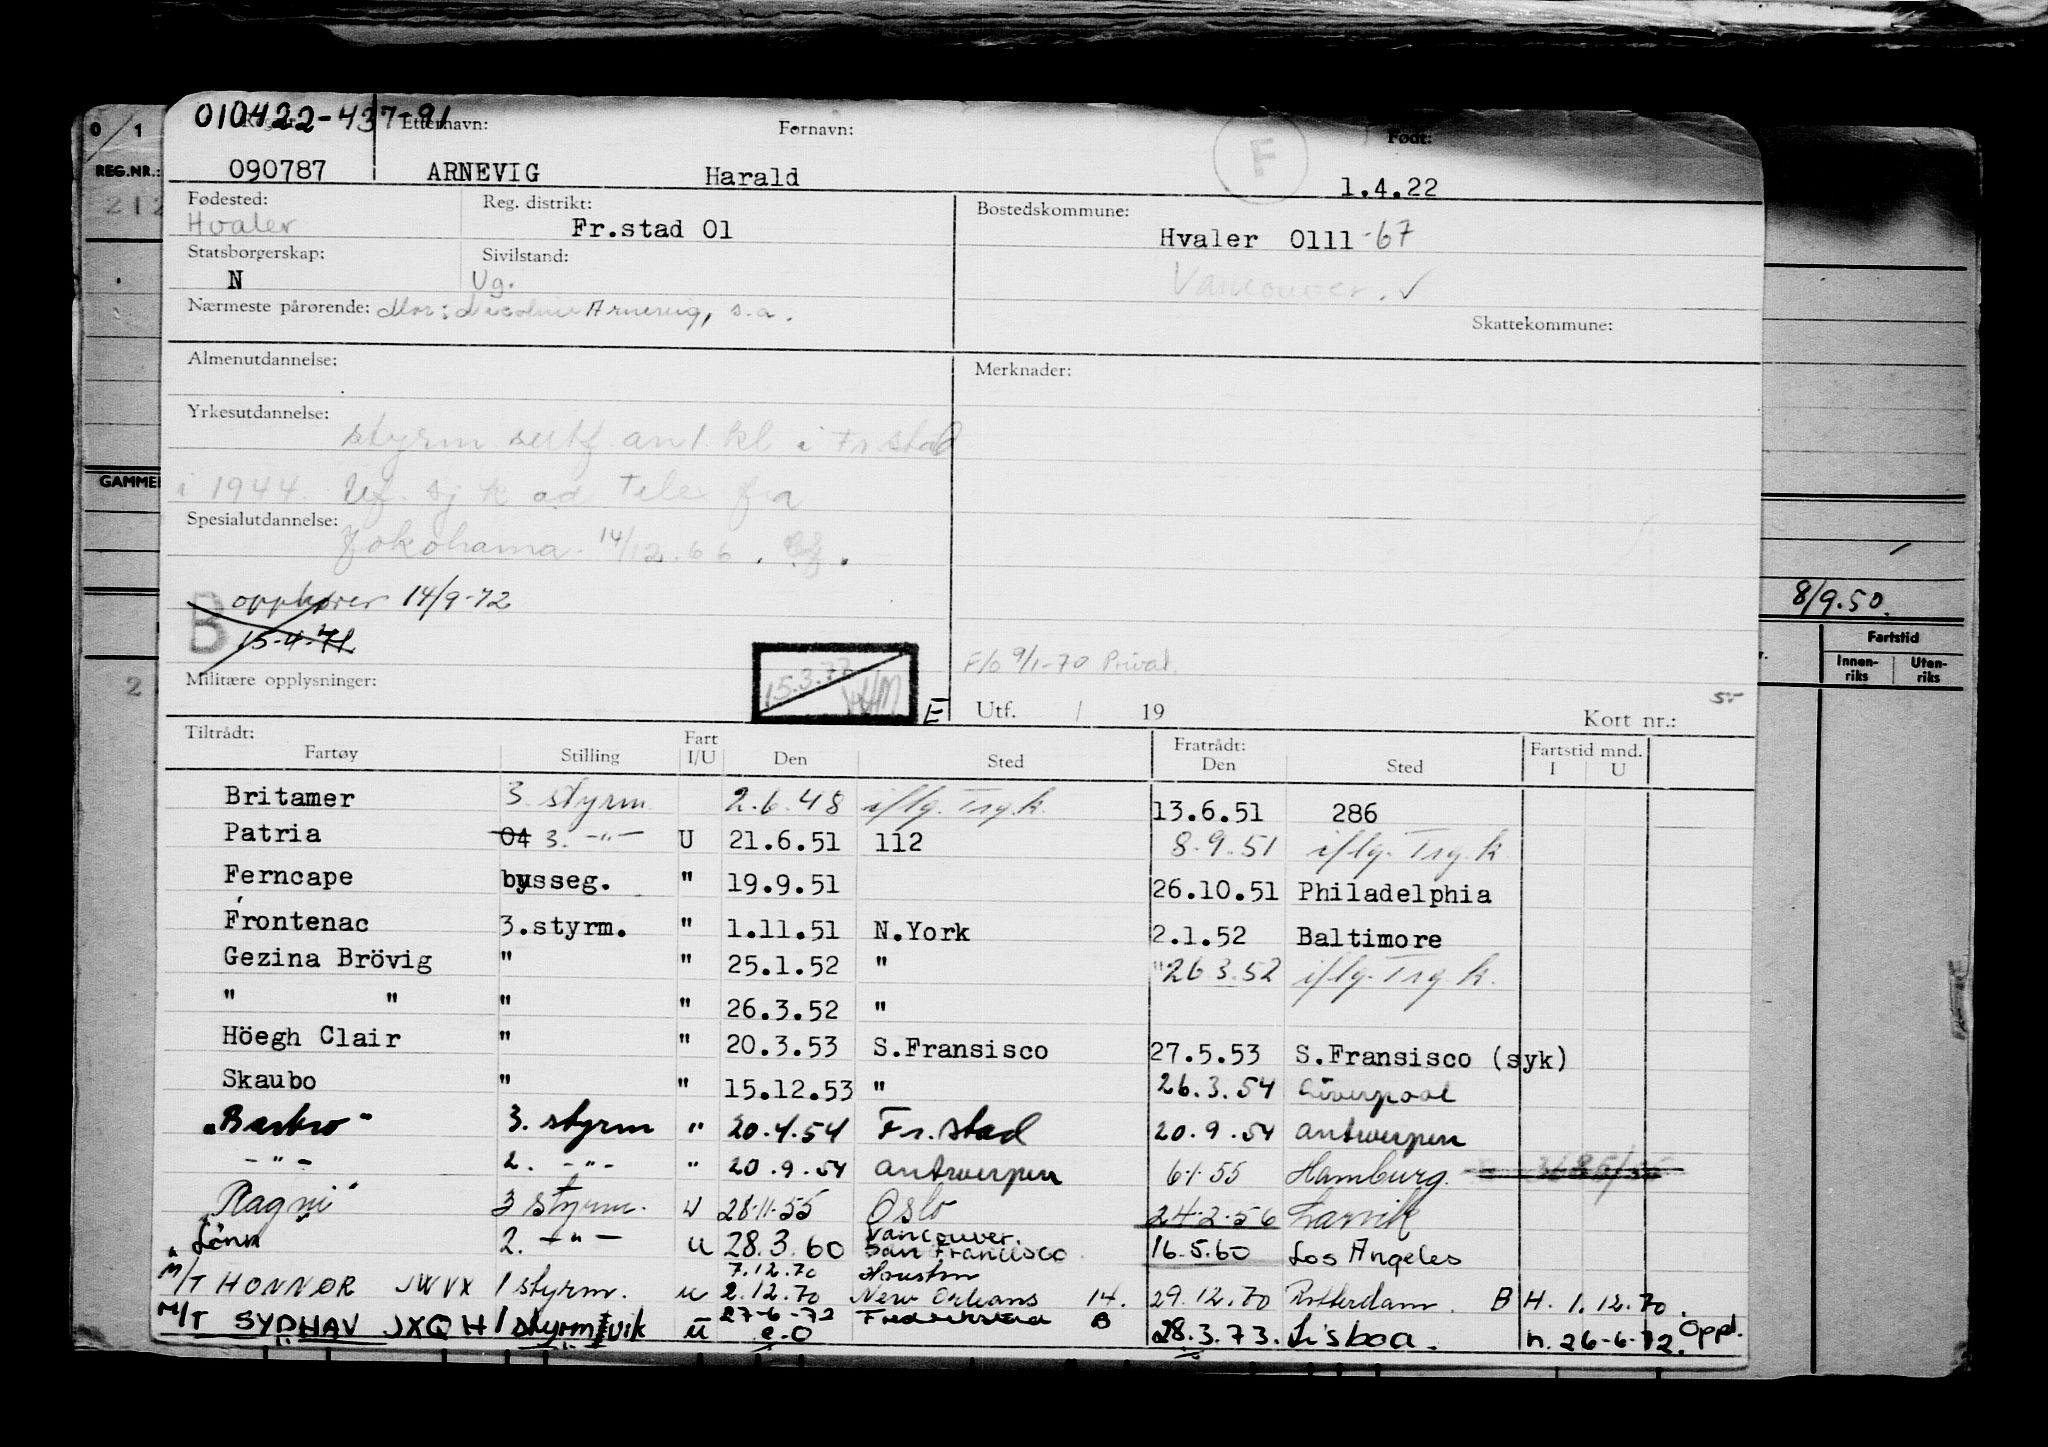 010422-437-91
0/1 Etternavn: Fornavn: F Født:
REG.NR.: 090787 ARNEVIG Harald 1.4.22
212
Fødested: Reg. distrikt: Bostedskommune:
Hvaler Fr.stad 01 Hvaler 0111-67
Statsborgerskap: Sivilstand:
N Ug. Vancouver. ✓
Nærmeste pårørende: Mor: Arnevig, s.a.
Skattekommune:
Almenutdannelse: Merknader:
Yrkesutdannelse:
styrm i Fr.stad
GAMMEL
i 1944. tele fra
Spesialutdannelse:
Yokohama 14/12.66.
B opphører 14/9-72 8/9.50.
15-4-71
Fartstid
Innen-riks Uten-riks
Militære opplysninger: 15.3.77 E F/O 9/1-70 Privat.
2
Utf. / 19 Kort nr.: 5-
Tiltrådt: Fart Fratrådt: Fartstid mnd.
Fartøy Stilling I/U Den Sted Den Sted I U
Britamer 3. styrm. 2.6.48 iflg. Trg.k. 13.6.51 286
Patria 04 3. -"- U 21.6.51 112 8.9.51 iflg. Trg.k.
Ferncape bysseg. " 19.9.51 26.10.51 Philadelphia
Frontenac 3.styrm. " 1.11.51 N.York 2.1.52 Baltimore
Gezina Brövig " " 25.1.52 " "26.3.52 iflg. Trg.k.
" " " " 26.3.52 "
Höegh Clair " " 20.3.53 S.Fransisco 27.5.53 S.Fransisco (syk)
Skaubo " " 15.12.53 " 26.3.54 Liverpool
"Barbro" 3. styrm " 20.4.54 Fr.stad 20.9.54 Antwerpen
-"- 2. -"- " 20.9.54 Antwerpen 6.1.55 Hamburg.
"Ragni" 3 styrm. U 28.11.55 Oslo 24.2.56 Larvik
"Lönn 2. -"- U 28.3.60 Vancouver. San Francisco 16.5.60 Los Angeles
7.12.70 Houston
M/T HONNØR JWVX 1 styrm. u 2.12.70 New Orleans 14. 29.12.70 Rotterdam. B H. 1.12.70.
M/T SYDHAV JXQH 1 styrm/vik ü 27-6-72 Fredrikstad B 28.3.73. Lisboa. n. 26-6-72. Oppl.
e.o